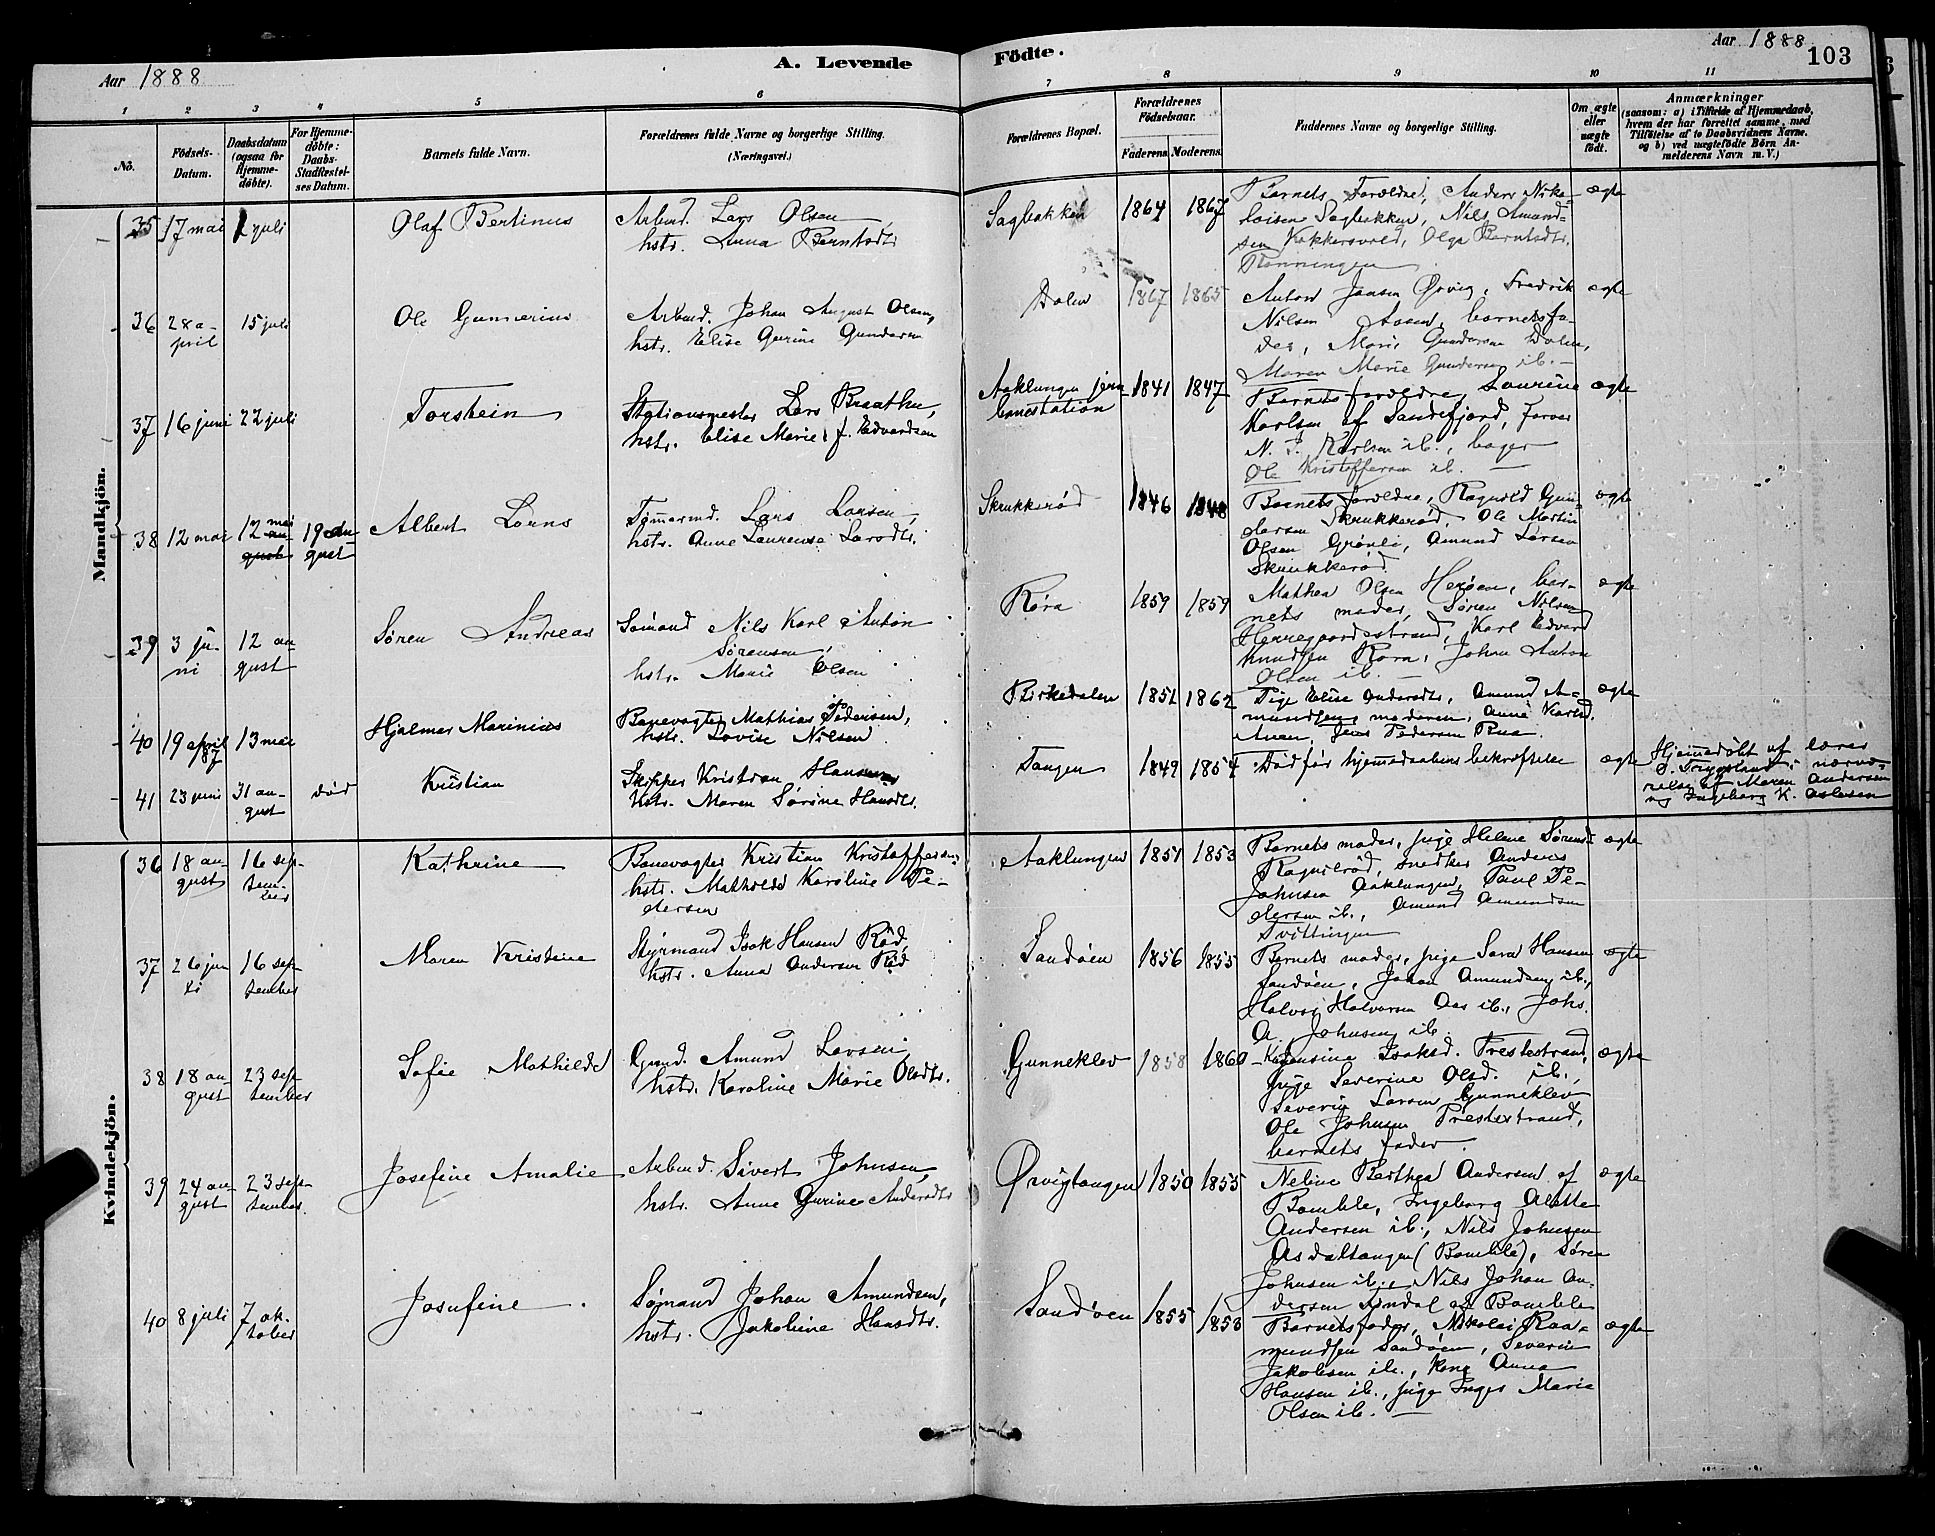 Aar 1888
A. Levende
Födte.
Aar 1888
103
1 2 3 4 5 6 7 8 9 10 11
No.
Födsels-Datum.
Daabsdatum (ogsaa for Hjemme-döbte).
For Hjemme-döbte: Daabs-Stadfæstel-ses Datum.
Barnets fulde Navn.
Forældrenes fulde Navne og borgerlige Stilling. (Næringsvei.)
Forældrenes Bopæl.
Forældrenes Födselsaar.
Faderens Moderens
Faddernes Navne og borgerlige Stilling.
Om ægte eller uægte födt.
Anmærkninger
(saasom: a) i Tilfælde af Hjemmedaab, hvem der har forrettet samme, med Tilföielse af to Daabsvidners Navne, og b) ved uægtefödte Börn An-melderens Navn m. V.)
Mandkjön.
35 17 mai 1 juli Olaf Bertinus
Arbmd. Lars Olsen
hstr. Anna Berntsdtr.
Sagbakken 1864 1867
Barnets Forældre, Anders Niko-
laisen Sagbakken, Nils Amund-
sen Kokkersvold, Olga Berntsdtr.
Rønningen
ægte
36 28 a-
pril
15 juli Ole Gunnerius
Arbmd. Johan August Olsen,
hstr. Elise Gurine Gundersen
Dalen 1867 1865
Anton Jensen Ørvig, Fredrik
Nilsen Aasen, barnets fa-
der, Maren Gundersen Dalen,
Maren Marie Gundersen ib. —
ægte
37 16 juni 22 juli Torstein
Stationsmester Lars Braathen,
hstr. Elise Marie f. Edvardsen
Aaklungen jern-
banestation
1841 1847
Barnets forældre, Laurine
Karlsen af Sandefjord, farver
N. J. Karlsen ib., bager
Ole Kristoffersen ib. —
ægte
38 12 mai 12 mai
gust
19 au-
gust
Albert Lorns
Tømermd. Lars Larsen,
hstr. Anne Laurense Larsdtr.
Skrukkerød 1846 1848
Barnets forældre, Ragnvald Gun-
dersen Skrukkerød, Ole Martin
Olsen Grønli, Amund Larsen
Skrukkerød
ægte
39 3 ju-
ni
12 au-
gust
Søren Andreas
Sømand Nils Karl Anton
Sørensen,
hstr. Marie Olsen
Røra 1859 1859
Mathea Olsen Herøen, bar-
nets moder, Søren Nilsen
Herregaardsstrand, Karl Edvard
Knudsen Røra, Johan Anton
Olsen ib. —
ægte
40 19 april
87
13 mai Hjalmar Marinius
Banevogter Mathias Pedersen,
hstr. Lovise Nilsen
Birkedalen 1851 1862
Pige Elise Andersdtr., Amund A-
mundsen, moderen, Anne Karls.
Jens Pedersen
ægte
41 23 juni 31 au-
gust
død Kristian
Skipper Kristian Hansen
hstr. Maren Sørine Hansdtr.
Tangen 1849 1854
Død før hjemmedaabens bekræftelse
ægte
Hjemmedøbt af lærer
Tryggland i nærvæ-
relse af Maren Andersen
og Ingeborg K. Aslesen
Kvindekjön.
36 18 au-
gust
16 sep-
tem-
ber
Kathrine
Banevogter Kristian Kristoffersen,
hstr. Mathilde Karoline Pe-
dersen
Aaklungen 1851 1853
Barnets moder, pige Helene Sørens-
Ragnilrød, snedker Anders
Johnsen Aaklungen, Paul Pe-
dersen ib., Amund Amundsen
Tvittingen
ægte
37 26 jun
i
16 sep-
tember
Maren Kristine
Styrmand Isak Hansen Rød,
hstr. Anna Andersen Rød
Sandøen 1856 1855
Barnets moder, pige Sara Hansen
Sandøen, Johan Amundsen ib.,
Halvor Halvorsen Aas ib., Johs.
A. Johnsen ib.
ægte
38 18 au-
gust
23 sep-
tember
Sofie Mathilde
Grmd. Amund Larsen
hstr. Karoline Marie Olsdtr.
Gunneklev 1858 1860
Isaksd. Prestestrand,
pige Severine Olsd. ib.,
Severin Larsen Gunneklev
Ole Johnsen Prestestrand,
barnets fader.
ægte
39 24 au-
gust
23 sep-
tember.
Josefine Amalie
Arbmd. Sivert Johnsen,
hstr. Anne Gurine Andersdtr.
Ørvigtangen 1850 1855
Neline Berthea Andersen af
Bamble, Ingeborg Alette
Andersen ib., Nils Johnsen
Asdaltangen (Bamble), Søren
Johnsen ib., Nils Johan An-
dersen Findal af Bamble
ægte
40 8 juli 7 ok-
tober
Josefine.
Sømand Johan Amundsen,
hstr. Jakobine Hansdtr.
Sandøen 1855 1853
Barnets fader, Nikolai Raa-
mundsen Sandøen, Severin
Jakobsen ib., kone Anna
Hansen ib., pige Inger Marie
Olsen ib. —
ægte